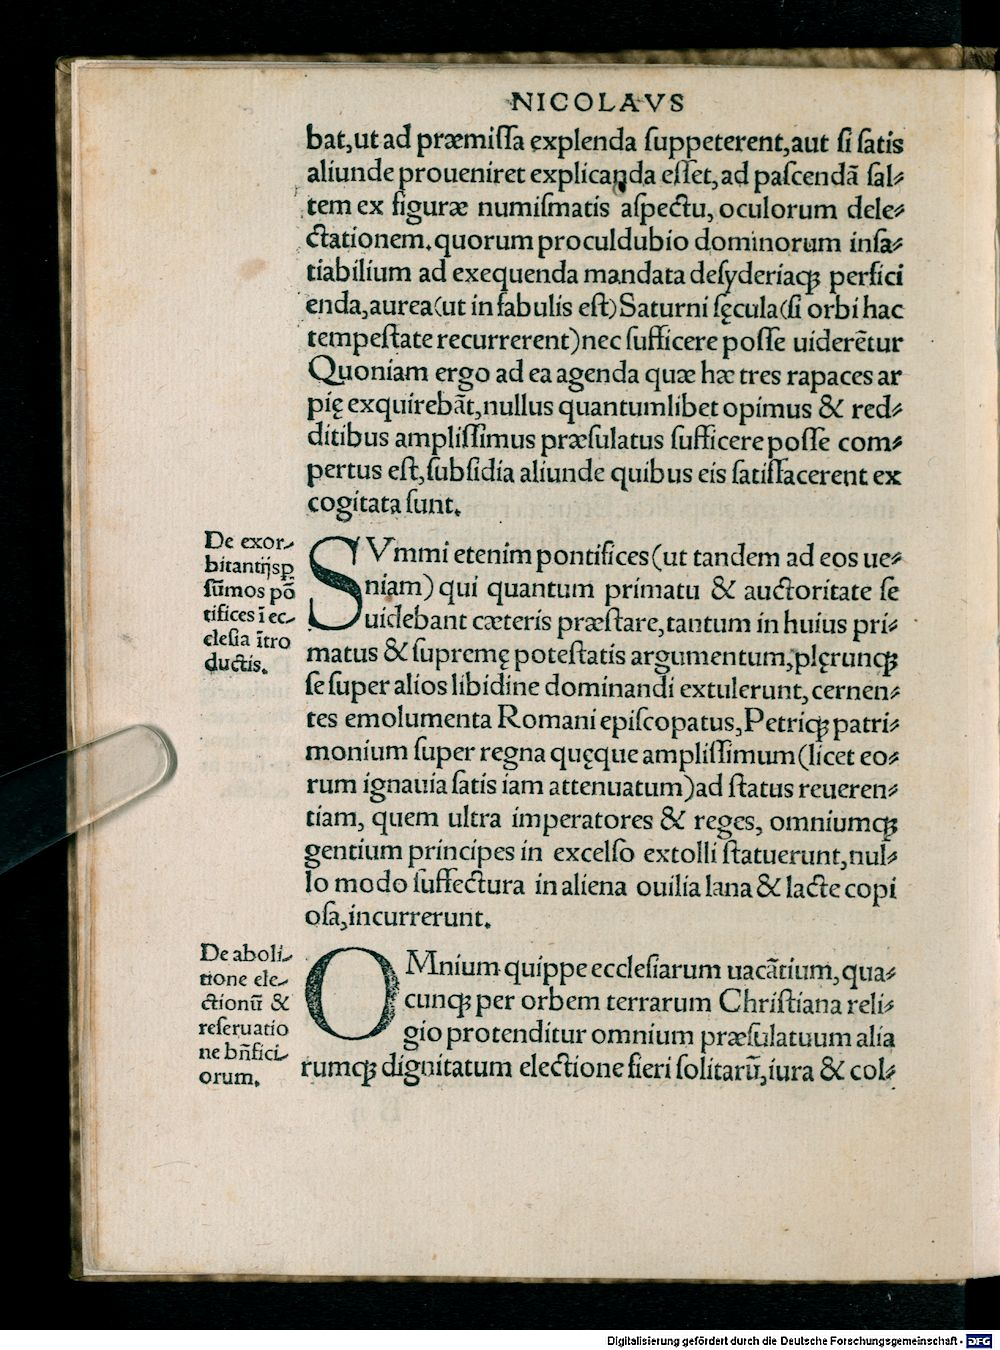 NICOLAVS
bat,ut ad præmiſſa explenda ſuppeterent,aut ſi ſatis
aliunde proueniret explicanda eſſet,ad paſcendã ſal-
tem ex figuræ numiſmatis aſpectu, oculorum dele-
ctationem.quorum proculdubio dominorum inſa-
tiabilium ad exequenda mandata deſyderiaqꝫ perfici
enda,aurea(ut in fabulis eſt)Saturni ſęcula(ſi orbi hac
tempeſtate recurrerent)nec ſufficere poſſe uiderẽtur
Quoniam ergo ad ea agenda quæ hæ tres rapaces ar
pię exquirebãt,nullus quantumlibet opimus & red-
ditibus ampliſſimus præſulatus ſufficere poſſe com-
pertus eſt,ſubſidia aliunde quibus eis ſatiſfacerent ex
cogitata ſunt.
De exor-
bitantijs ꝑ
ſũmos põ
tifices ĩ ec-
cleſia ĩtro
ductis.
SVmmi etenim pontifices(ut tandem ad eos ue-
niam) qui quantum primatu & auctoritate ſe
uidebant cæteris præſtare,tantum in huius pri-
matus & ſupremę poteſtatis argumentum,plęrunqꝫ
ſe ſuper alios libidine dominandi extulerunt, cernen-
tes emolumenta Romani epiſcopatus,Petriqꝫ patri-
monium ſuper regna quęque ampliſſimum(licet eo-
rum ignauia ſatis iam attenuatum)ad ſtatus reueren-
tiam, quem ultra imperatores & reges, omniumqꝫ
gentium principes in excelſo extolli ſtatuerunt,nul-
lo modo ſuffectura in aliena ouilia lana & lacte copi
oſa,incurrerunt.
De aboli-
tione ele-
ctionũ &
reſeruatio
ne bñfici-
orum.
OMnium quippe eccleſiarum uacãtium,qua-
cunqꝫ per orbem terrarum Chriſtiana reli-
gio protenditur omnium præſulatuum alia
rumqꝫ dignitatum electione fieri ſolitarũ,iura & col-
Digitalisierung gefördert durch die Deutsche Forschungsgemeinschaft - DFG